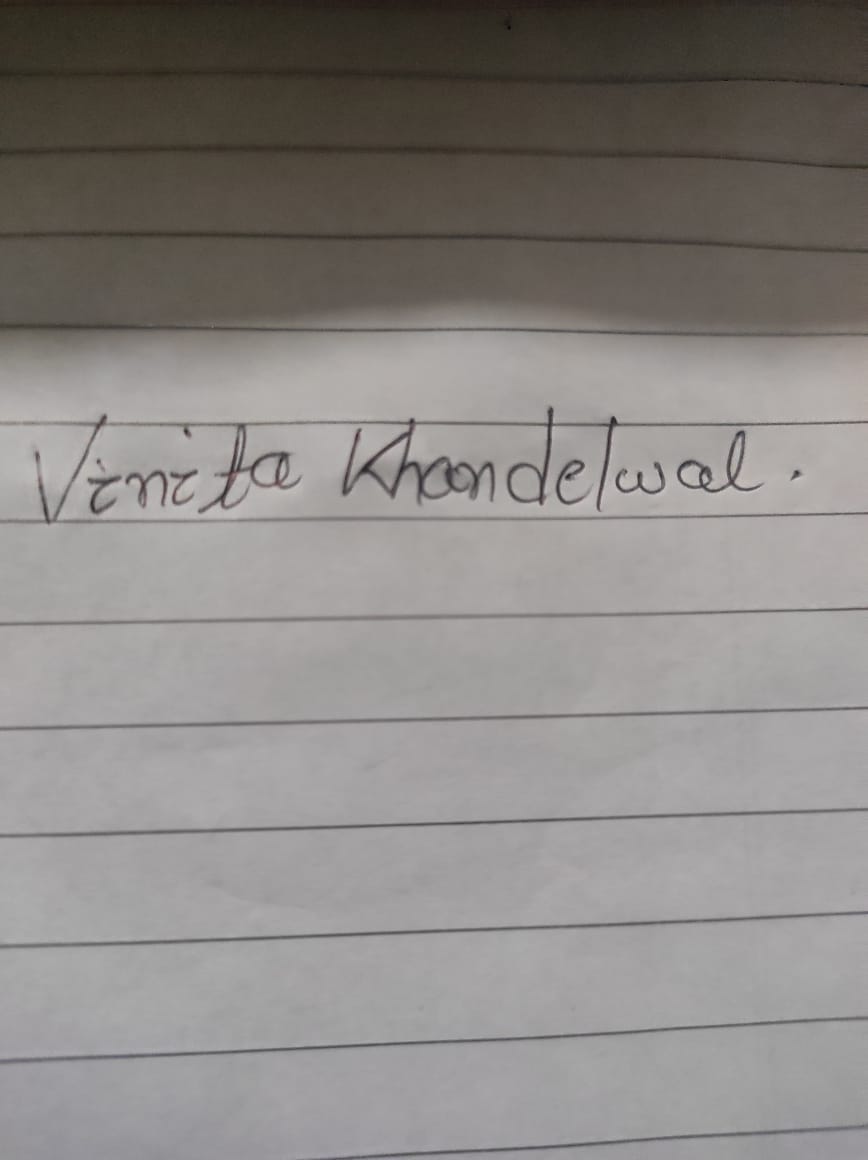 Vinita Khandelwal.